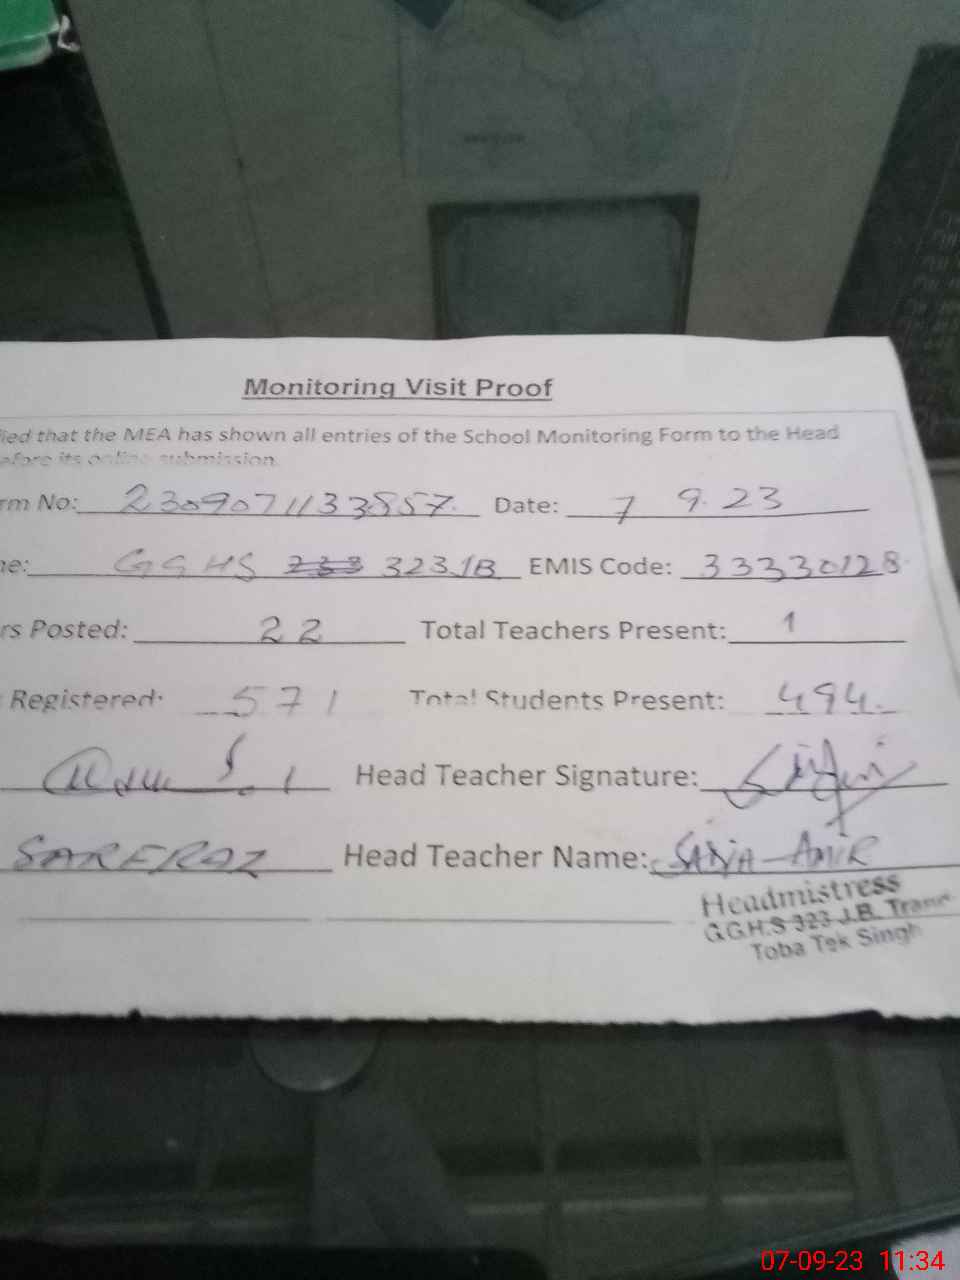 Monitoring Visit Proof
fied that the MEA has shown all entries of the School Monitoring Form to the Head
efore its online submission.
rm No: 2309071133857. Date: 7 9.23
ne: GGHS 233 323JB EMIS Code: 33330128
rs Posted: 22 Total Teachers Present: 1
Registered: 571 Total Students Present: 494
Head Teacher Signature:
SARFRAZ Head Teacher Name: SANIA-AMIR
Headmistress
G.G.H.S 323 J.B.
Toba Tek Singh
07-09-23 11:34